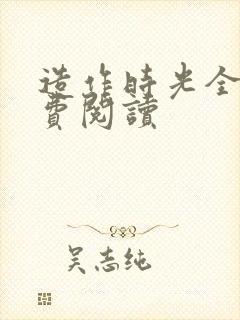 造作時光全
費閱讀
吴志纯